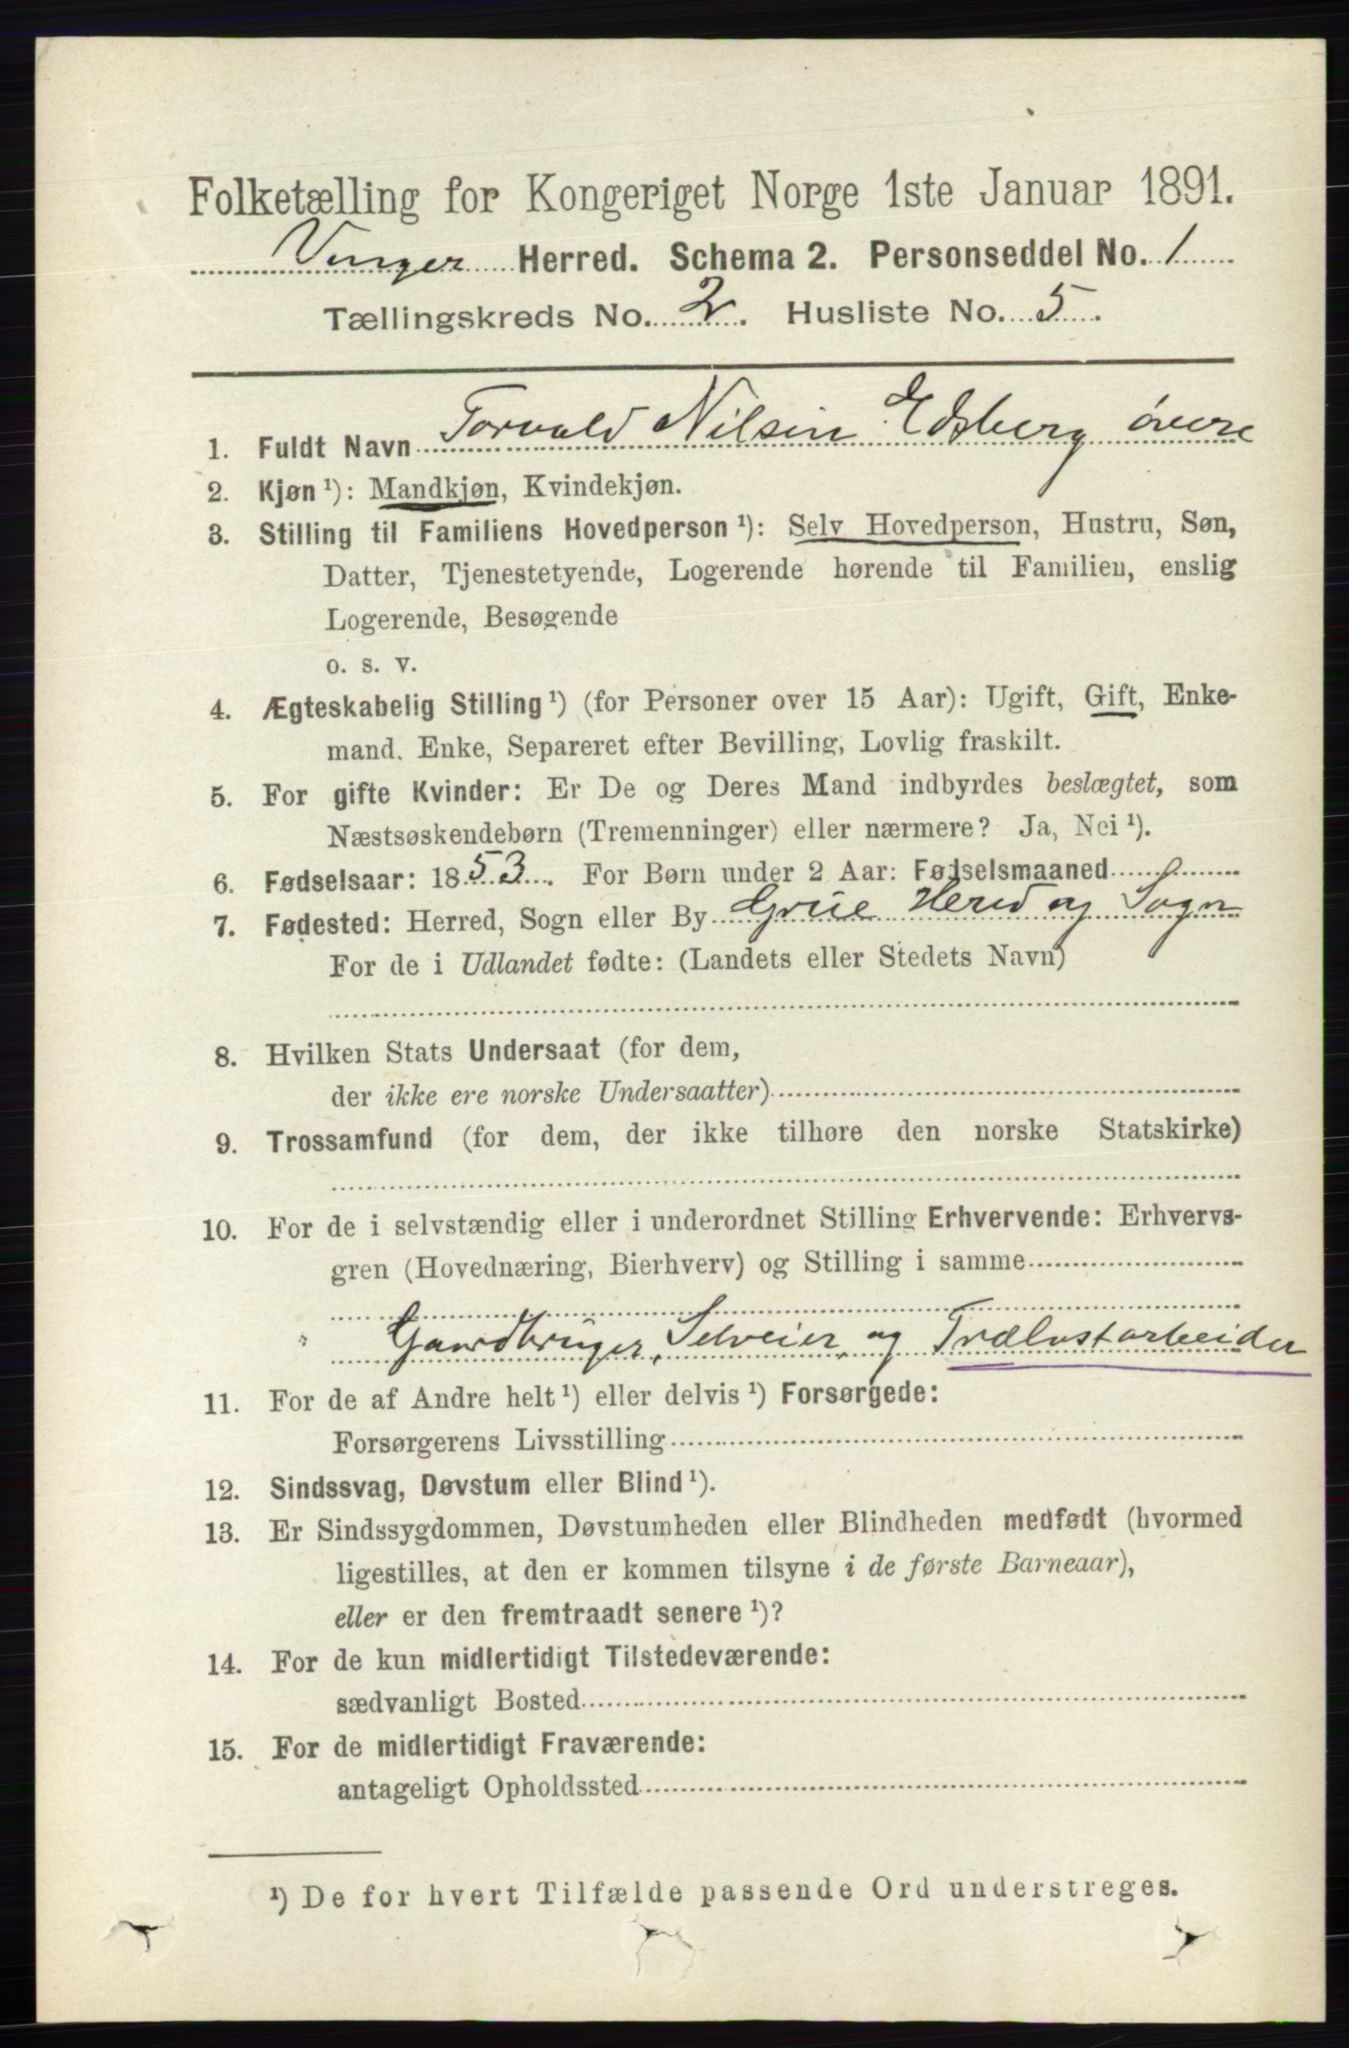 Folketælling for Kongeriget Norge 1ste Januar 1891.
Vinger Herred. Schema 2. Personseddel No. 1
Tællingskreds No. 2. Husliste No. 5.
1. Fuldt Navn Torvald Nilsen Edsberg övere
2. Kjøn ¹): Mandkjøn, Kvindekjøn.
3. Stilling til Familiens Hovedperson ¹): Selv Hovedperson, Hustru, Søn,
Datter, Tjenestetyende, Logerende hørende til Familien, enslig
Logerende, Besøgende
o. s. v.
4. Ægteskabelig Stilling ¹) (for Personer over 15 Aar): Ugift, Gift, Enke-
mand, Enke, Separeret efter Bevilling, Lovlig fraskilt.
5. For gifte Kvinder: Er De og Deres Mand indbyrdes beslægtet, som
Næstsøskendebørn (Tremenninger) eller nærmere? Ja, Nei ¹).
6. Fødselsaar: 1853. For Børn under 2 Aar: Fødselsmaaned
7. Fødested: Herred, Sogn eller By Grue Herred og Sogn
For de i Udlandet fødte: (Landets eller Stedets Navn)
8. Hvilken Stats Undersaat (for dem,
der ikke ere norske Undersaatter)
9. Trossamfund (for dem, der ikke tilhøre den norske Statskirke)
10. For de i selvstændig eller i underordnet Stilling Erhvervende: Erhvervs-
gren (Hovednæring, Bierhverv) og Stilling i samme
Gaardbruger, Selveier, og Trælastarbeider
11. For de af Andre helt ¹) eller delvis ¹) Forsørgede:
Forsørgerens Livsstilling
12. Sindssvag, Døvstum eller Blind ¹).
13. Er Sindssygdommen, Døvstumheden eller Blindheden medfødt (hvormed
ligestilles, at den er kommen tilsyne i de første Barneaar),
eller er den fremtraadt senere ¹)?
14. For de kun midlertidigt Tilstedeværende:
sædvanligt Bosted
15. For de midlertidigt Fraværende:
antageligt Opholdssted
¹) De for hvert Tilfælde passende Ord understreges.